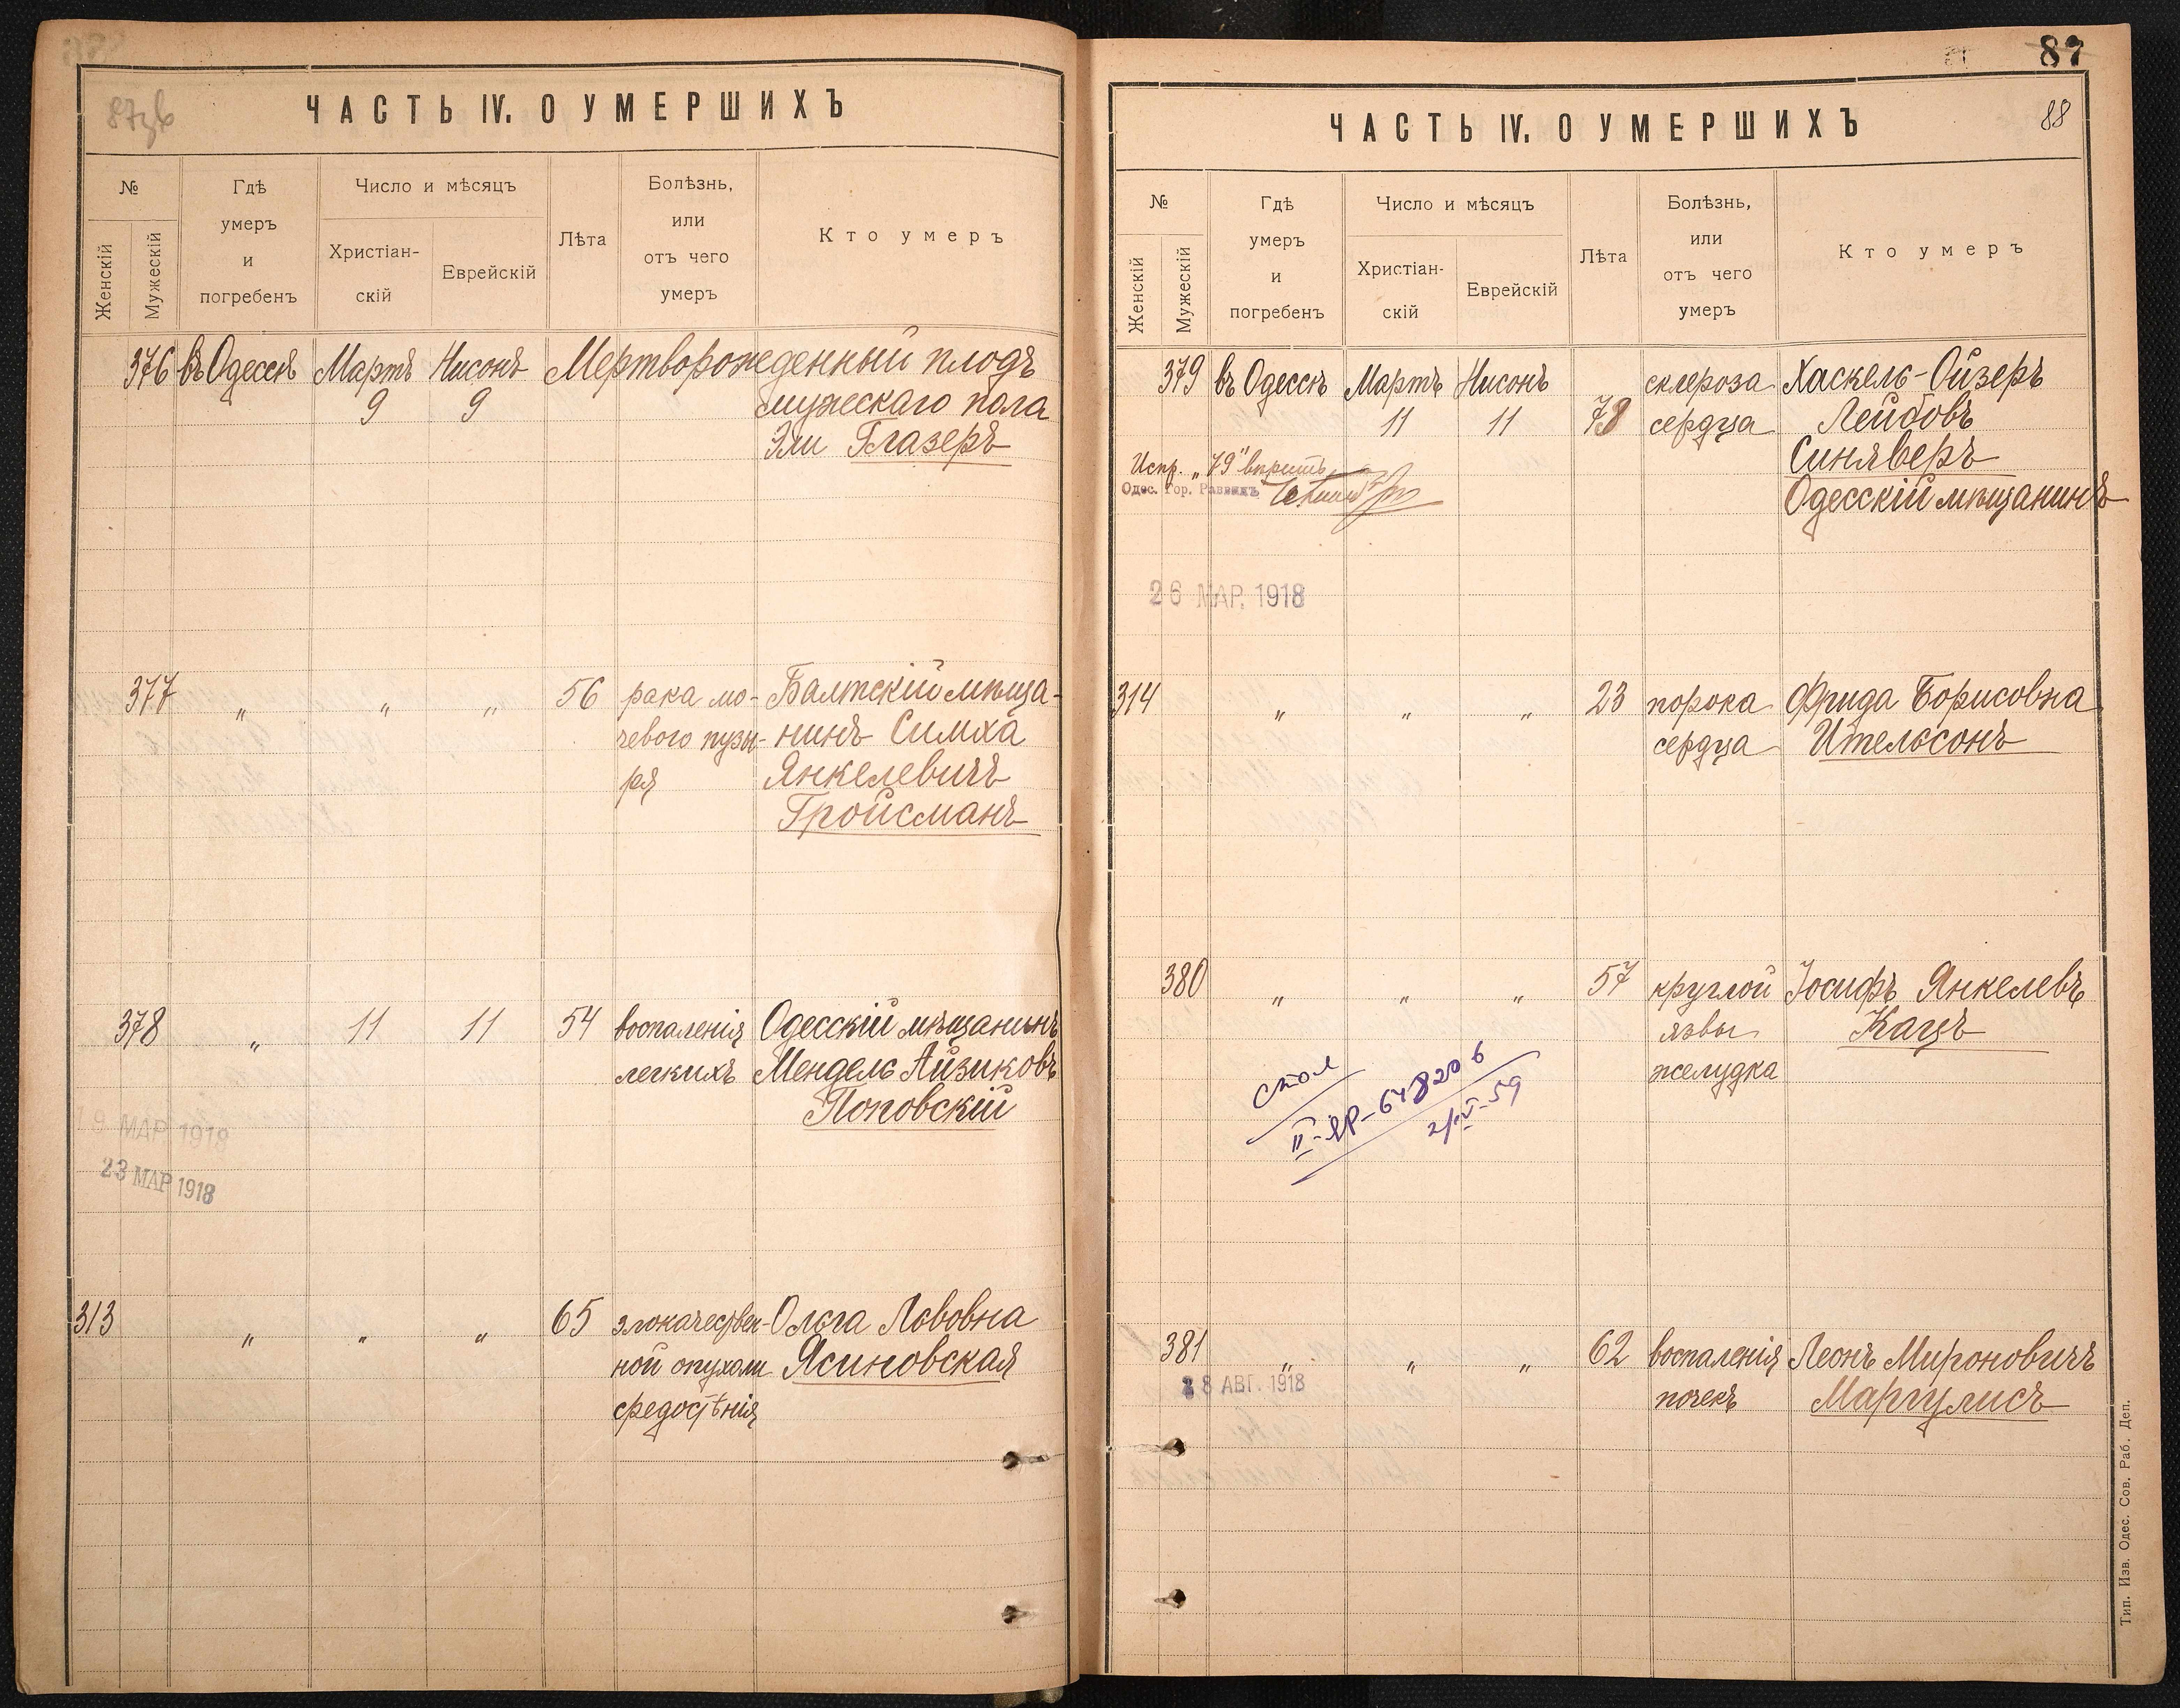 87зв
ЧАСТЬ IV. О УМЕРШИХЪ
№
Женскій
Мужескій
Гдѣ
умеръ
и
погребенъ
Число и мѣсяцъ
Христіан-
скій
Еврейскій
Лѣта
Болѣзнь,
или
отъ чего
умеръ
Кто умеръ
376 въ Одессѣ Мартъ Нисонъ Мертворожденный плодъ
9 9 мужескаго пола
Эли Глазеръ
377 " " " 56 рака мо- Балтскій мѣща-
чевого пузы- нинъ Симха
ря Янкелевичъ
Гройсманъ
378 " 11 11 54 воспаленія Одесскій мѣщанинъ
легкихъ Мендель Айзиковъ
Поповскій
19 МАР 1918
23 МАР 1918
313 " " " 65 злокачествен- Ольга Львовна
ной опухоли Ясиновская
средостѣнія
87
88
ЧАСТЬ IV. О УМЕРШИХЪ
№
Женскій
Мужескій
Гдѣ
умеръ
и
погребенъ
Число и мѣсяцъ
Христіан-
скій
Еврейскій
Лѣта
Болѣзнь,
или
отъ чего
умеръ
Кто умеръ
379 въ Одессѣ Мартъ Нисонъ склероза Хаскель-Ойзеръ
11 11 78 сердца Лейбовъ
Синяверъ
Одесскій мѣщанинъ
Испр.
Одес. Гор. Раввинъ
26 МАР. 1918
314 " " " 23 порока Фрида Борисовна
сердца Ительсонъ
380 " " " 57 круглой Іосифъ Янкелевъ
язвы Кацъ
желудка
II-ЯР-648206
381 " " " 62 воспаленія Леонъ Мироновичъ
почекъ Маргулисъ
28 АВГ. 1918
Тип. Изв. Одес. Сов. Раб. Деп.